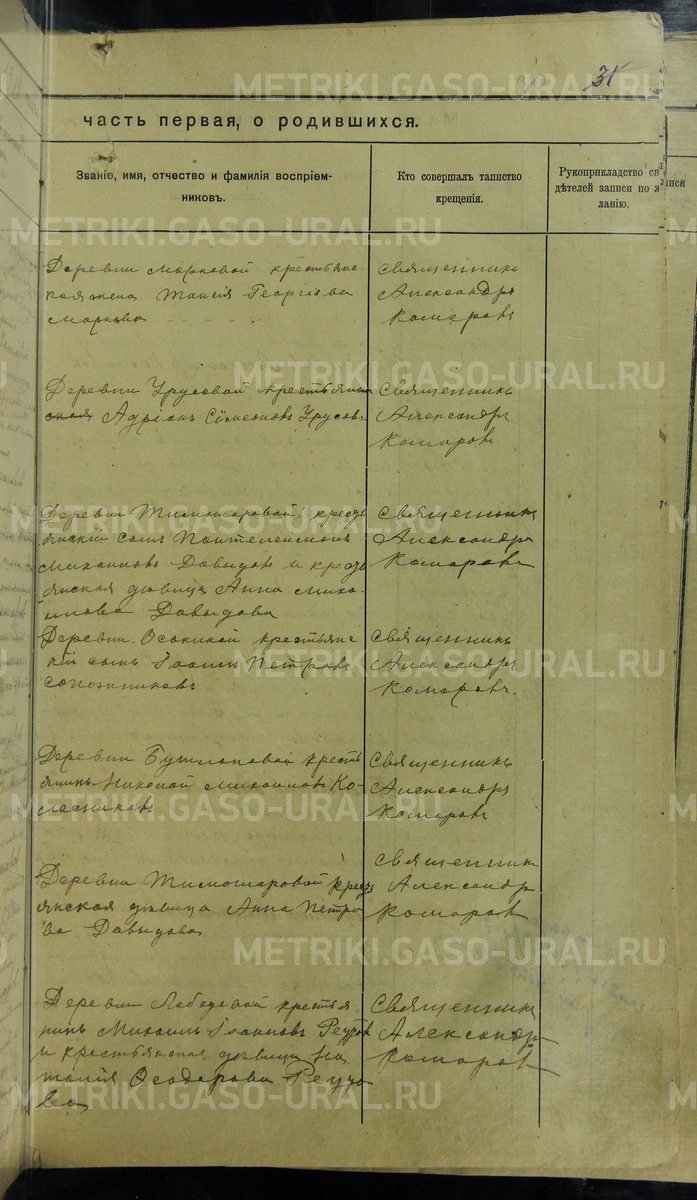 31
часть первая, о родившихся.
Званіе, имя, отчество и фамилія воспріем-
никовъ.
Кто совершалъ таинство
крещенія.
Рукоприкладство сви
дѣтелей записи по ж
ланію.
Деревни Марковой крестьянс-
кая жена Таисія Георгіева
Маркова
Священникъ
Александръ
Комаровъ
Деревни Урусовой крестьянин
ская Адріанъ Сімеоновъ Урусовъ
Священникъ
Александръ
Комаровъ
Деревни Тимошаровой крест
янскій сынъ Пантелеимонъ
Михаиловъ Давыдовъ и крест
янская дѣвица Анна Миха-
илова Давыдова
Священникъ
Александръ
Комаровъ
Деревни Осокиной крестьянс
кій сынъ Іоаннъ Петровъ
Сапожниковъ
Священникъ
Александръ
Комаровъ.
Деревни крестъ
янинъ Николай Михаиловъ Ко-
лесниковъ
Священникъ
Александръ
Комаровъ
Деревни Тимошаровой крест
янская дѣвица Анна Петро
ва Давыдова
Священникъ
Александръ
Комаровъ
Деревни Лебедевой крестья
нинъ Михаилъ Іоанновъ
и крестьянская дѣвица На
талія Ѳеодорова
ва
Священникъ
Александръ
Комаровъ
METRIKI.GASO-URAL.RU